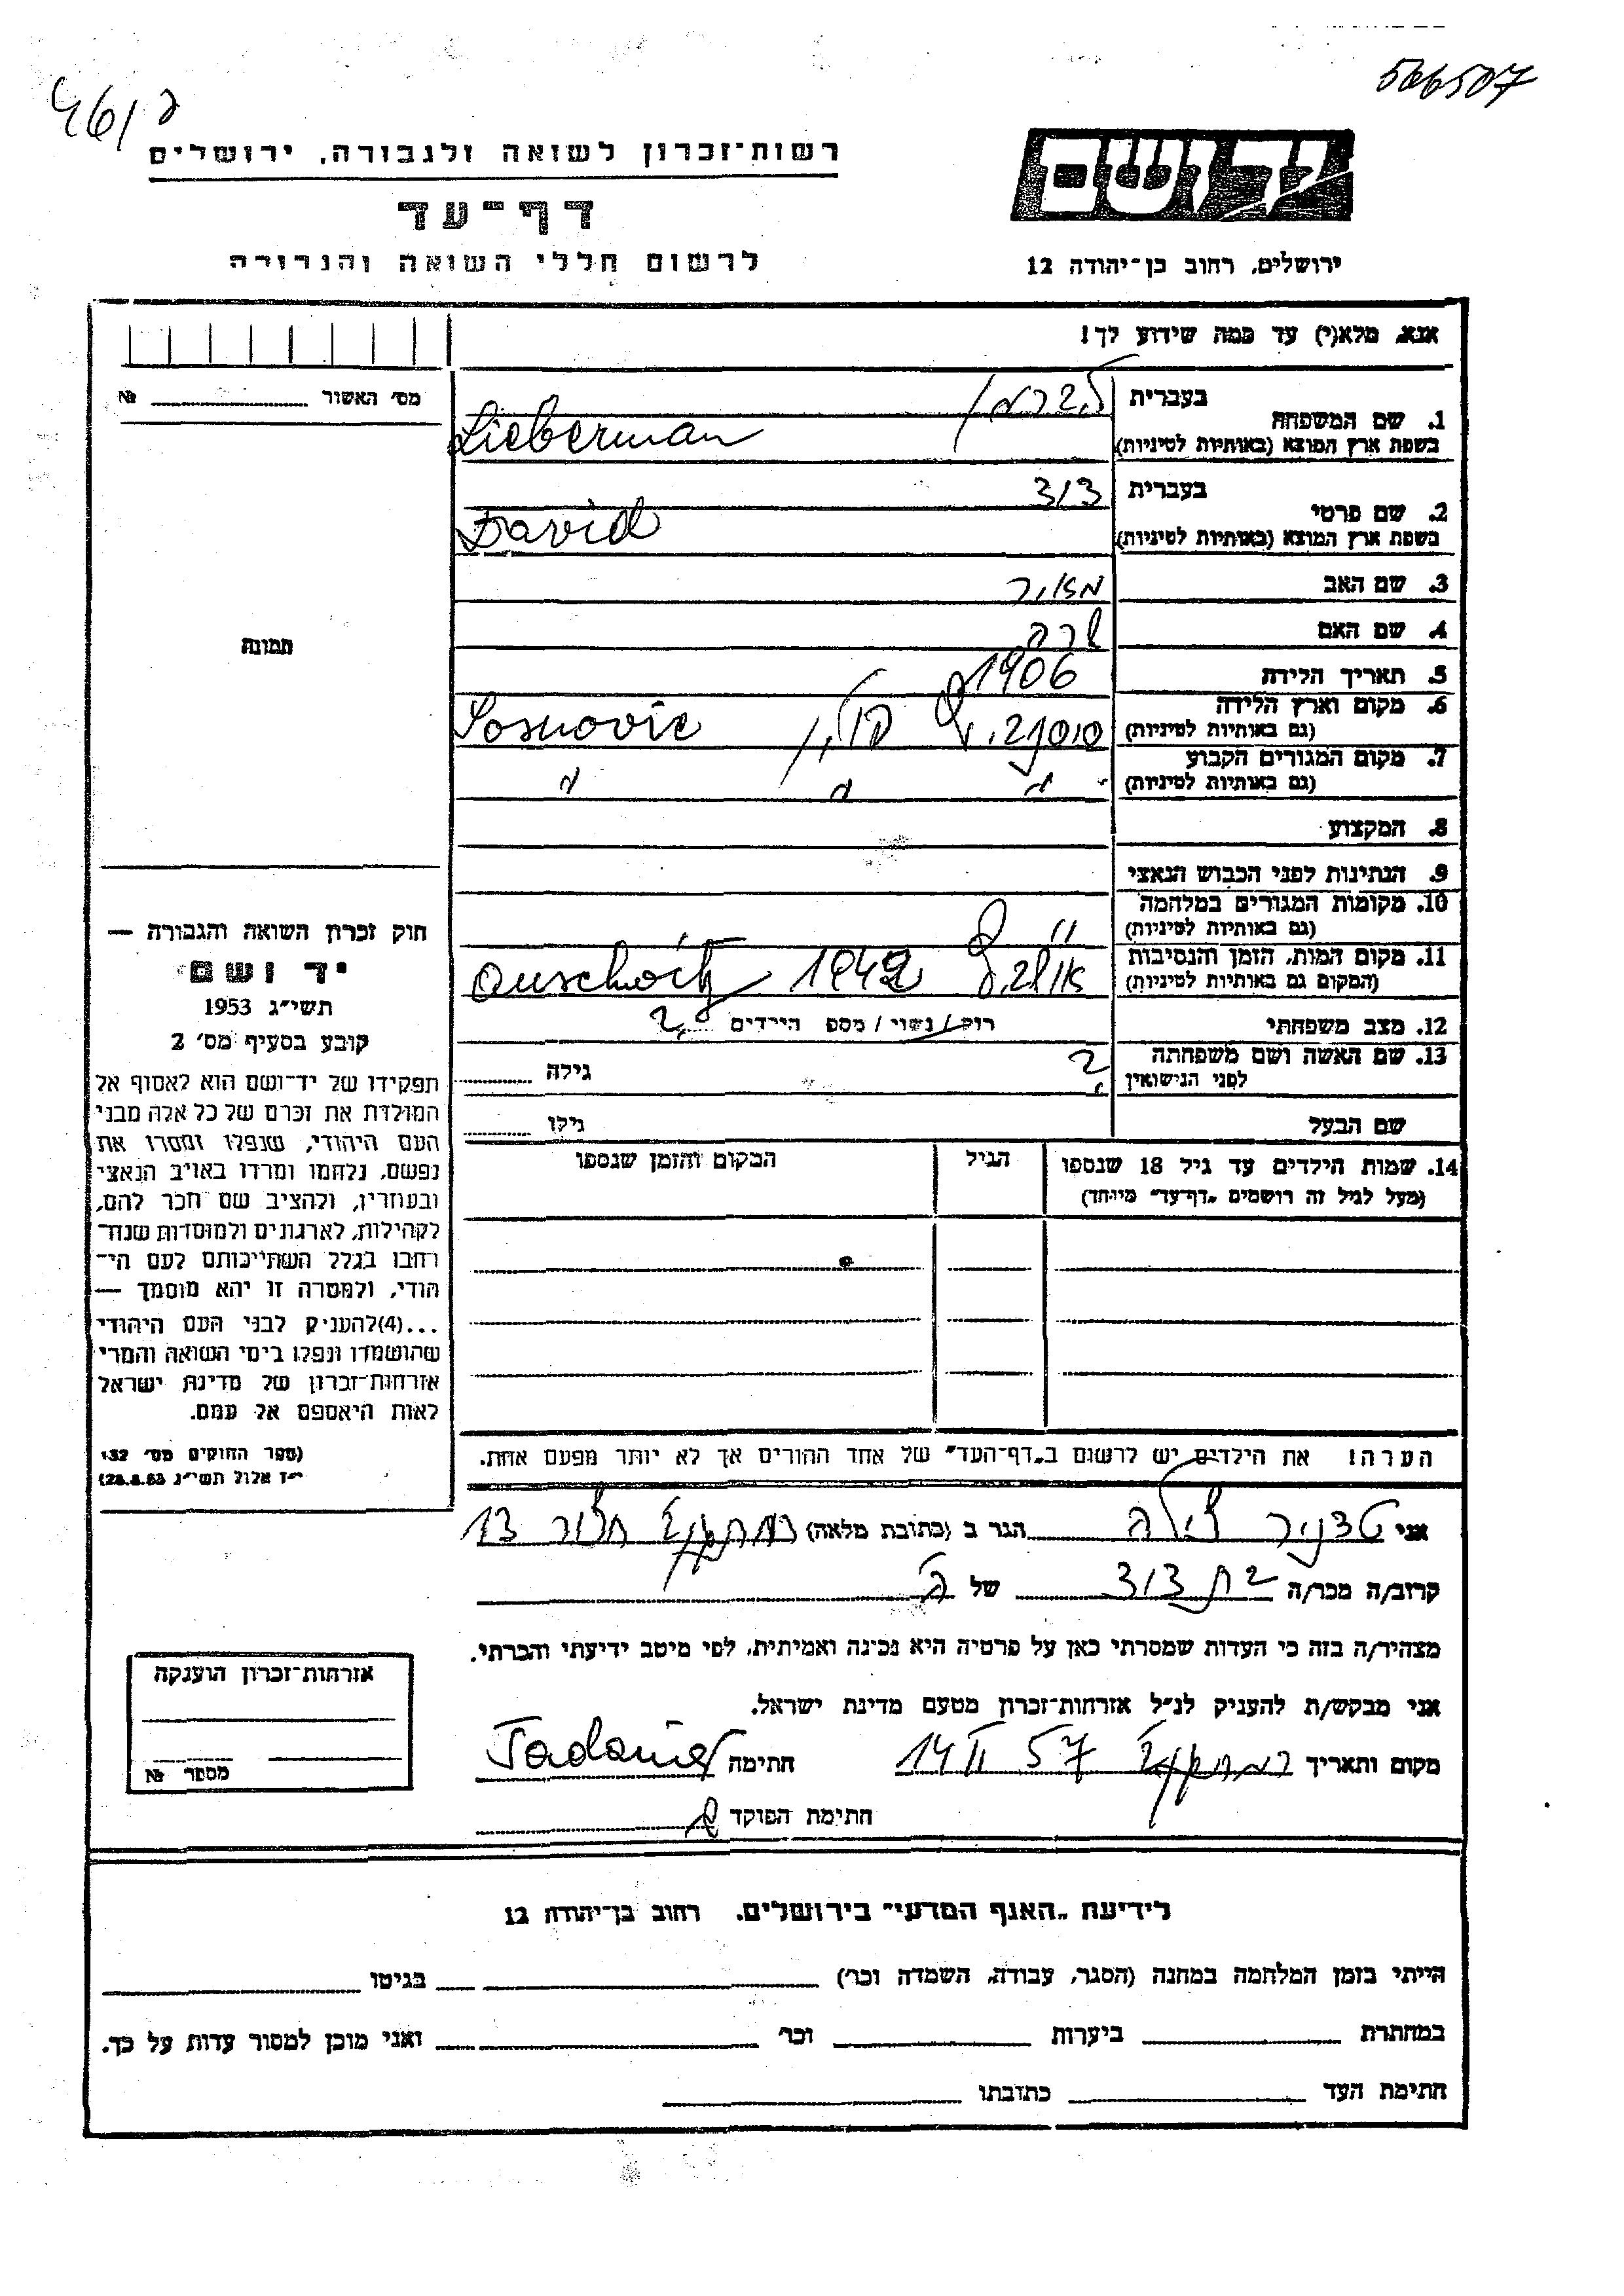 566507
רשות־זכרון לשואה ולגבורה, ירושלים
דף־עד
לרשום חללי השואה והגבורה
יד ושם
ירושלים, רחוב בן־יהודה 12
אנא, מלא(י) עד כמה שידוע לך!
מס׳ האשור № 
1. שם המשפחה
בעברית ליברמן
בשפת ארץ המוצא (באותיות לטיניות) Lieberman
2. שם פרטי
בעברית דוד
בשפת ארץ המוצא (באותיות לטיניות) David
3. שם האב מאיר
4. שם האם שרה
5. תאריך הלידה 1906
6. מקום וארץ הלידה
(גם באותיות לטיניות) פולין Sosnovic
7. מקום המגורים הקבוע
(גם באותיות לטיניות) " " "
8. המקצוע
9. הנתינות לפני הכבוש הנאצי
10. מקומות המגורים במלחמה
(גם באותיות לטיניות) "
11. מקום המות, הזמן והנסיבות
(המקום גם באותיות לטיניות) 1942 Auschwitz
12. מצב משפחתי רוק/נשוי/מספ הילדים ?
13. שם האשה ושם משפחתה
לפני הנישואין ? גילה
שם הבעל גילו
14. שמות הילדים עד גיל 18 שנספו
(מעל לגיל זה רושמים „דף־עד״ מיוחד)
הגיל
המקום והזמן שנספו
הערה! את הילדים יש לרשום ב„דף־העד״ של אחד ההורים אך לא יותר מפעם אחת.
תמונה
חוק זכרון השואה והגבורה —
יד ושם
תשי״ג 1953
קובע בסעיף מס׳ 2
תפקידו של יד־ושם הוא לאסוף אל
המולדת את זכרם של כל אלה מבני
העם היהודי, שנפלו ומסרו את
נפשם, נלחמו ומרדו באויב הנאצי
ובעוזריו, ולהציב שם וזכר להם,
לקהילות, לארגונים ולמוסדות שנח־
רחבו בגלל השתייכותם לעם הי־
הודי, ולמטרה זו יהא מוסמך —
...(4)להעניק לבני העם היהודי
שהושמדו ונפלו בימי השואה והמרי
אזרחות־זכרון של מדינת ישראל
לאות היאספם אל עמם.
(ספר החוקים מס׳ 132
י״ז אלול תשי״ג 28.8.53)
אני הגר ב (כתובת מלאה) 13
קרוב/ה מכר/ה בת דוד של
מצהיר/ה בזה כי העדות שמסרתי כאן על פרטיה היא נכונה ואמיתית, לפי מיטב ידיעתי והכרתי.
אני מבקש/ת להעניק לנ״ל אזרחות־זכרון מטעם מדינת ישראל.
מקום ותאריך 14 II 57 חתימה
חתימת הפוקד
אזרחות־זכרון הוענקה
מספר №
לידיעת „האגף המדעי״ בירושלים. רחוב בן־יהודה 12
הייתי בזמן המלחמה במחנה (הסגר, עבודה, השמדה וכו׳) בגיטו
במחתרת ביערות וכו׳ ואני מוכן למסור עדות על כך.
חתימת העד כתובתו